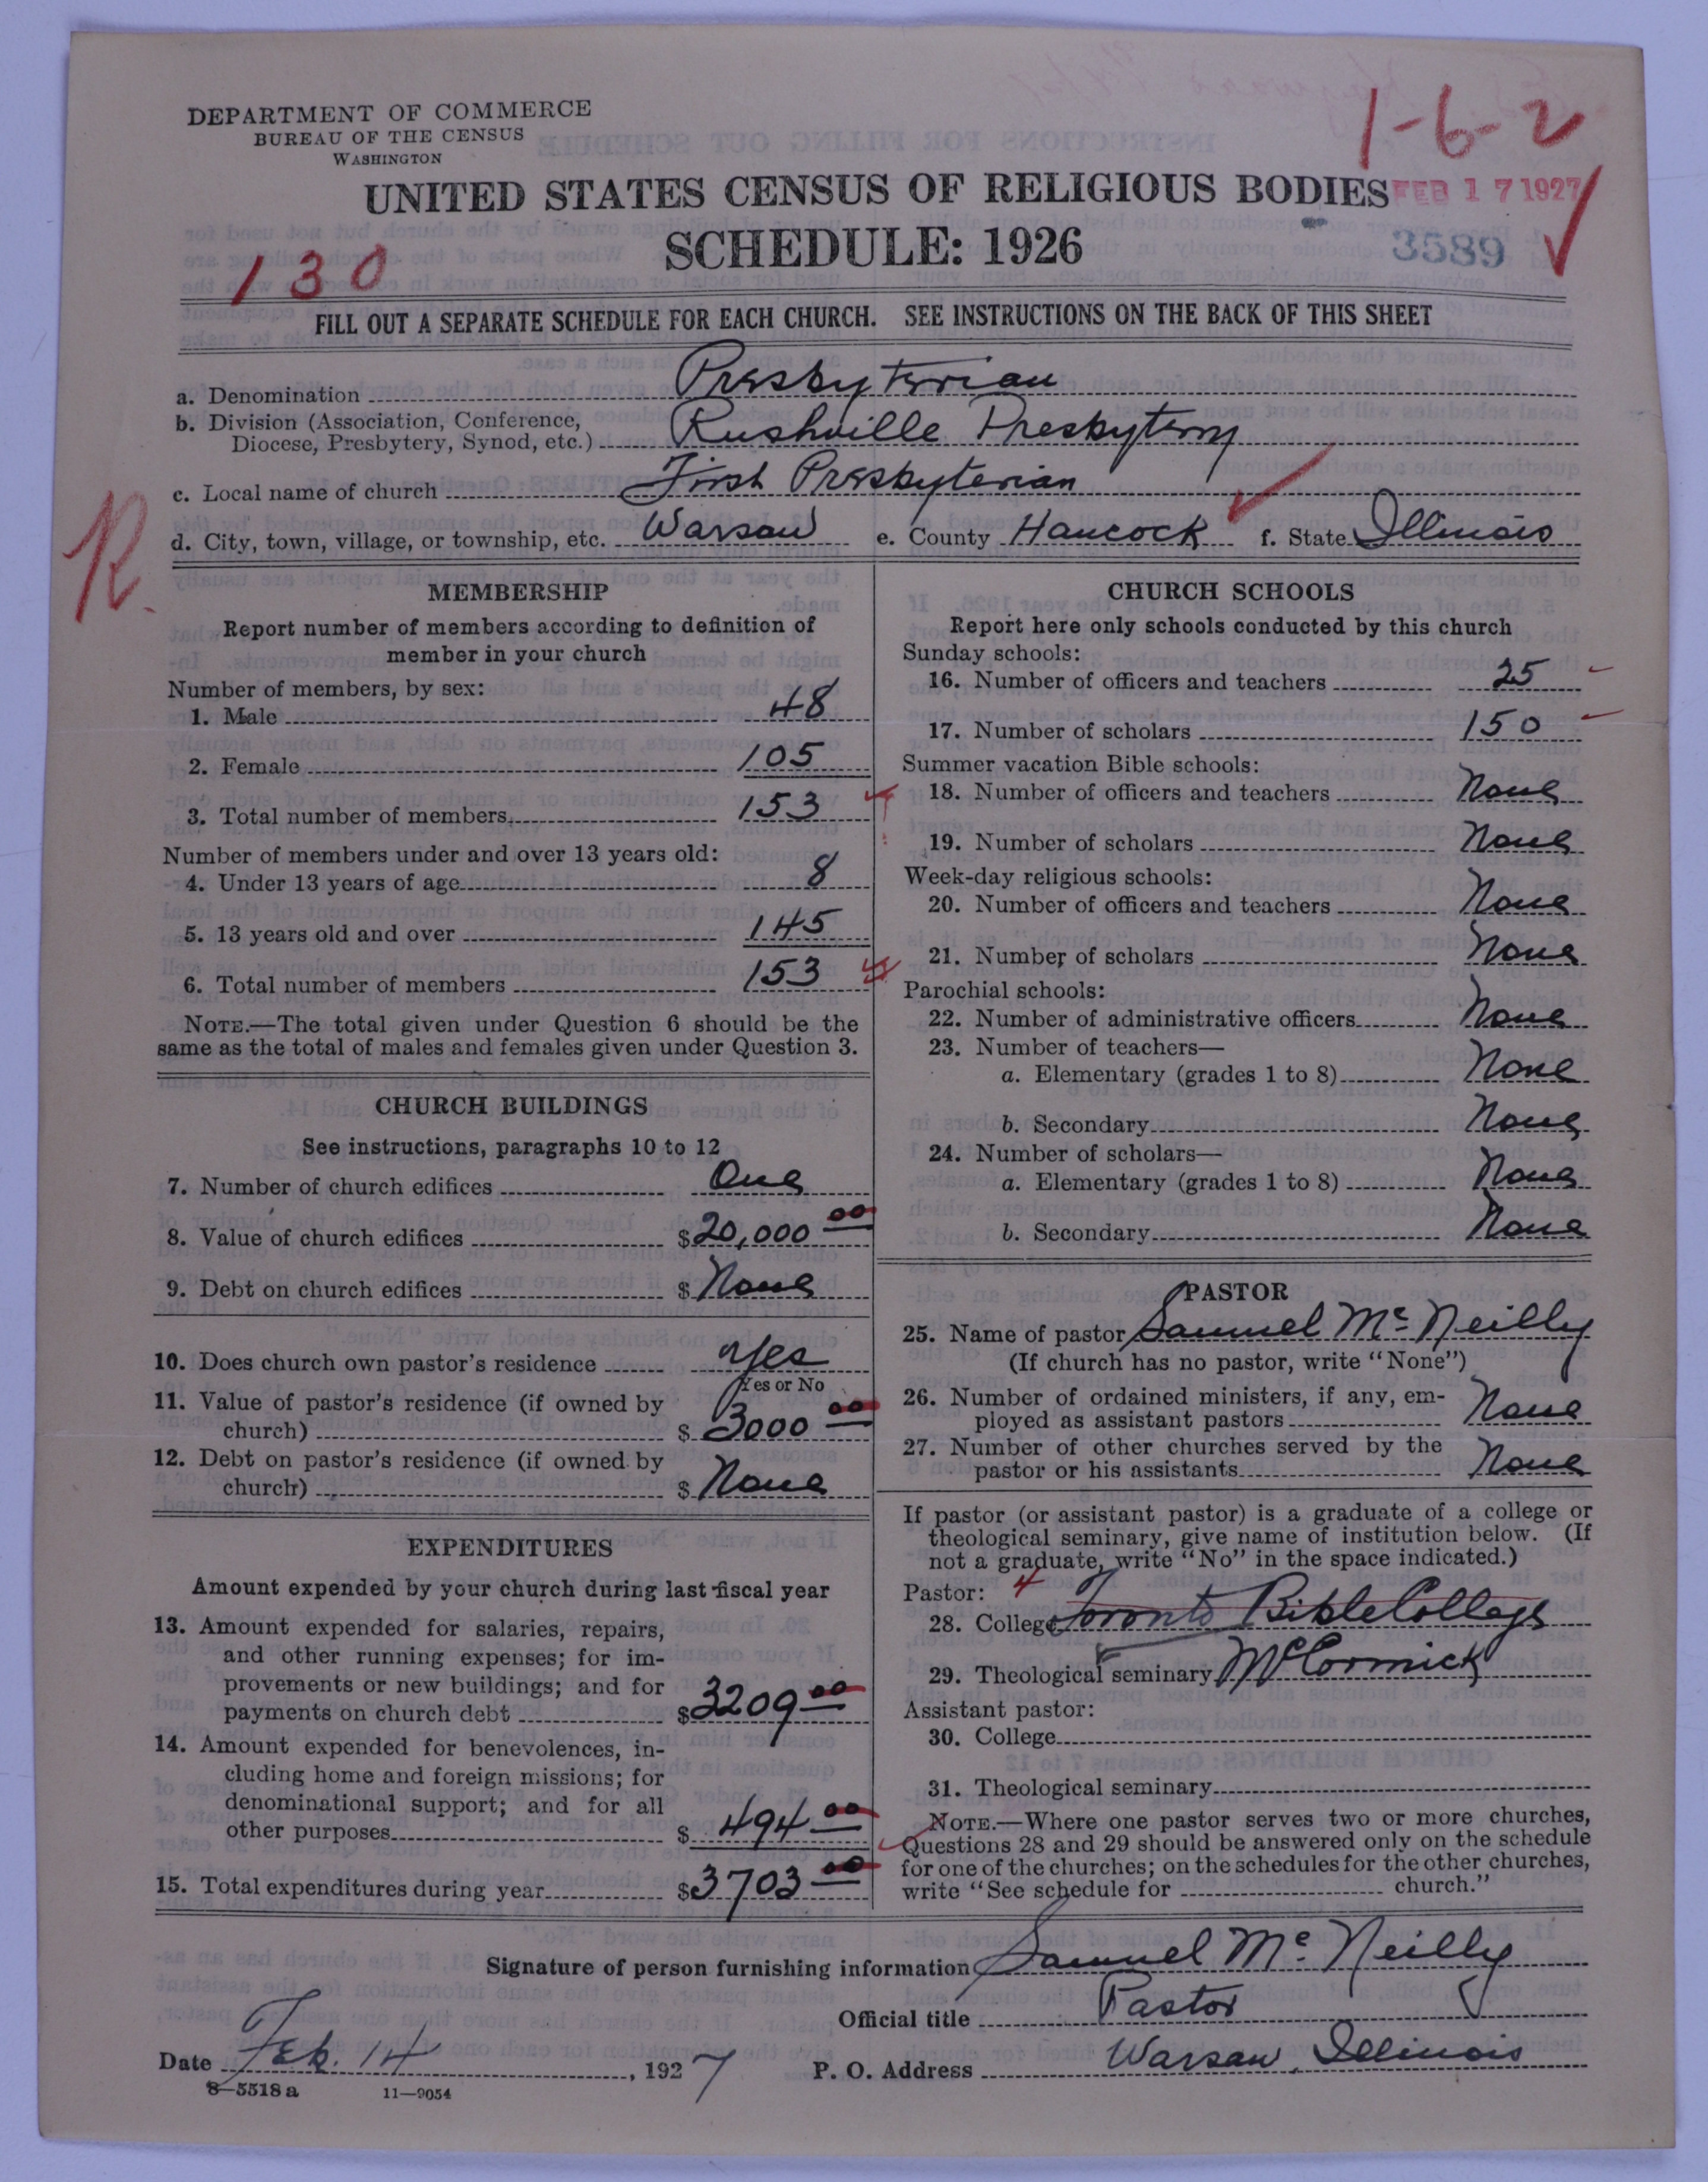 1-6-2
DEPARTMENT OF COMMERCE
BUREAU OF THE CENSUS
WASHINGTON
UNITED STATES CENSUS OF RELIGIOUS BODIES
FEB 17 1927
SCHEDULE: 1926
3589
130
FILL OUT A SEPARATE SCHEDULE FOR EACH CHURCH. SEE INSTRUCTIONS ON THE BACK OF THIS SHEET
a. Denomination Presbyterian
b. Division (Association, Conference,
Diocese, Presbytery, Synod, etc.) Rushville Presbytery
c. Local name of church First Presbyterian
d. City, town, village, or township, etc. Warsaw e. County Hancock f. State Illinois
R.
MEMBERSHIP
Report number of members according to definition of
member in your church
Number of members, by sex:
1. Male 48
2. Female 105
3. Total number of members 153
Number of members under and over 13 years old:
4. Under 13 years of age 8
5. 13 years old and over 145
6. Total number of members 153
NOTE.—The total given under Question 6 should be the
same as the total of males and females given under Question 3.
CHURCH BUILDINGS
See instructions, paragraphs 10 to 12
7. Number of church edifices One
8. Value of church edifices $20,000 00
9. Debt on church edifices $ None
10. Does church own pastor's residence Yes
Yes or No
11. Value of pastor's residence (if owned by
church) $ 3000 00
12. Debt on pastor's residence (if owned by
church) $ None
EXPENDITURES
Amount expended by your church during last fiscal year
13. Amount expended for salaries, repairs,
and other running expenses; for im-
provements or new buildings; and for
payments on church debt $3209 00
14. Amount expended for benevolences, in-
cluding home and foreign missions; for
denominational support; and for all
other purposes $ 494 00
15. Total expenditures during year $3703 00
CHURCH SCHOOLS
Report here only schools conducted by this church
Sunday schools:
16. Number of officers and teachers 25
17. Number of scholars 150
Summer vacation Bible schools:
18. Number of officers and teachers None
19. Number of scholars None
Week-day religious schools:
20. Number of officers and teachers None
21. Number of scholars None
Parochial schools:
22. Number of administrative officers None
23. Number of teachers—
a. Elementary (grades 1 to 8) None
b. Secondary None
24. Number of scholars—
a. Elementary (grades 1 to 8) None
b. Secondary None
PASTOR
25. Name of pastor Samuel McNeilly
(If church has no pastor, write "None")
26. Number of ordained ministers, if any, em-
ployed as assistant pastors None
27. Number of other churches served by the
pastor or his assistants None
If pastor (or assistant pastor) is a graduate of a college or
theological seminary, give name of institution below. (If
not a graduate, write "No" in the space indicated.)
Pastor: 4
28. College Toronto Bible College
29. Theological seminary McCormick
Assistant pastor:
30. College
31. Theological seminary
NOTE.—Where one pastor serves two or more churches,
Questions 28 and 29 should be answered only on the schedule
for one of the churches; on the schedules for the other churches,
write "See schedule for church."
Signature of person furnishing information Samuel McNeilly
Official title Pastor
Date Feb. 14, 1927 P. O. Address Warsaw, Illinois
8—5518 a 11—9054